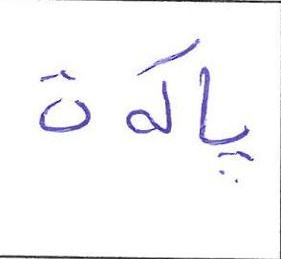 پاکەت